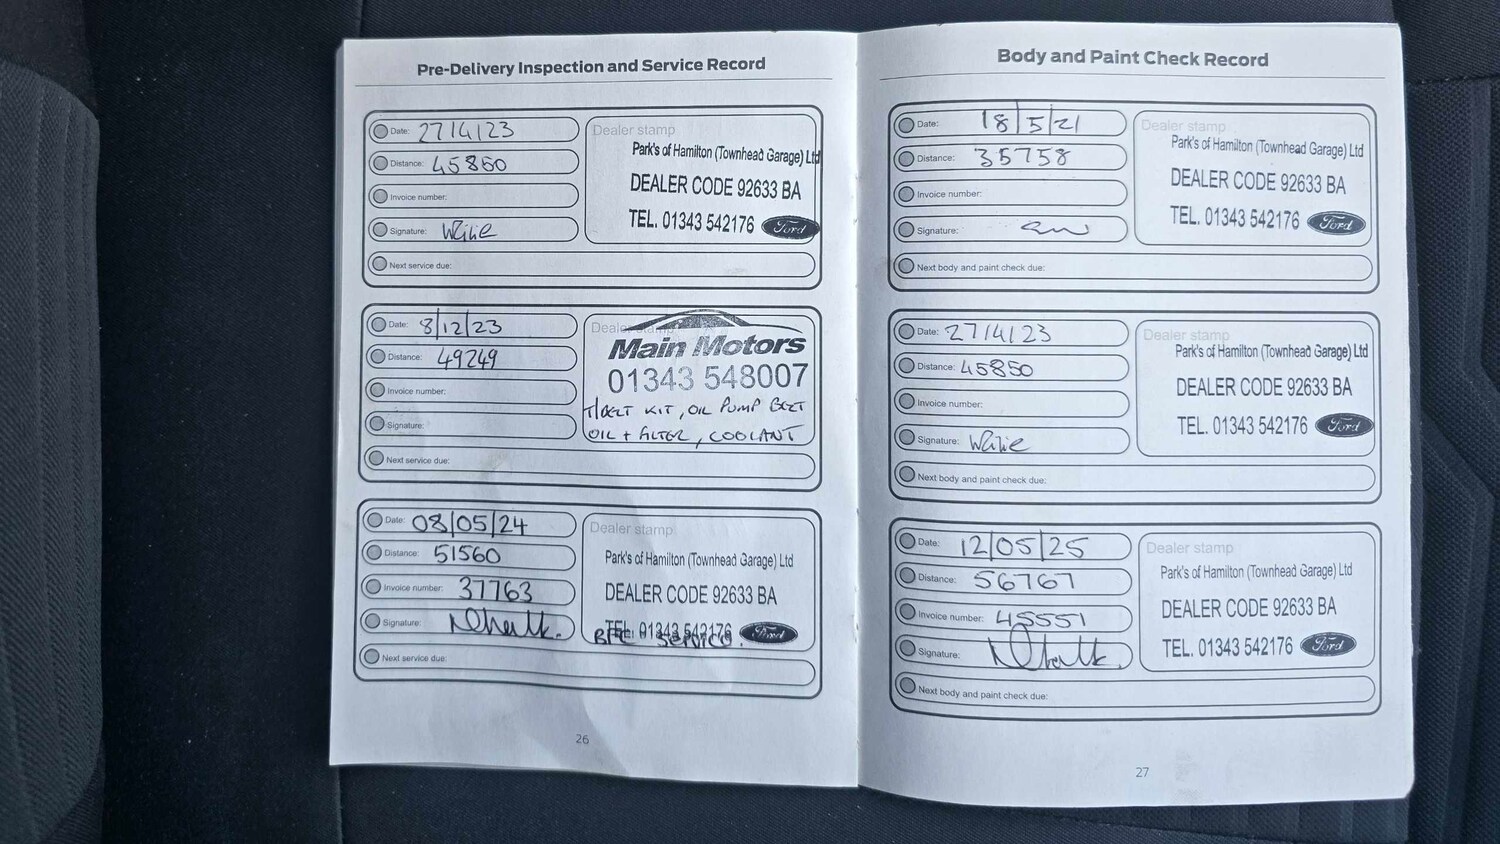 Pre-Delivery Inspection and Service Record
Date: 27/4/23
Distance: 45850
Invoice number:
Signature:
Next service due:
Dealer stamp
Park's of Hamilton (Townhead Garage) Ltd
DEALER CODE 92633 BA
TEL. 01343 542176 Ford
Date: 8/12/23
Distance: 49249
Invoice number:
Signature:
Next service due:
Dealer stamp
Main Motors
01343 548007
T/BELT KIT, OIL PUMP BELT
OIL + FILTER, COOLANT
Date: 08/05/24
Distance: 51560
Invoice number: 37763
Signature:
Next service due:
Dealer stamp
Park's of Hamilton (Townhead Garage) Ltd
DEALER CODE 92633 BA
TEL. 01343 542176 Ford
26
Body and Paint Check Record
Date: 18/5/21
Distance: 35758
Invoice number:
Signature:
Next body and paint check due:
Dealer stamp
Park's of Hamilton (Townhead Garage) Ltd
DEALER CODE 92633 BA
TEL. 01343 542176 Ford
Date: 27/4/23
Distance: 45850
Invoice number:
Signature:
Next body and paint check due:
Dealer stamp
Park's of Hamilton (Townhead Garage) Ltd
DEALER CODE 92633 BA
TEL. 01343 542176 Ford
Date: 12/05/25
Distance: 56767
Invoice number: 45551
Signature:
Next body and paint check due:
Dealer stamp
Park's of Hamilton (Townhead Garage) Ltd
DEALER CODE 92633 BA
TEL. 01343 542176 Ford
27